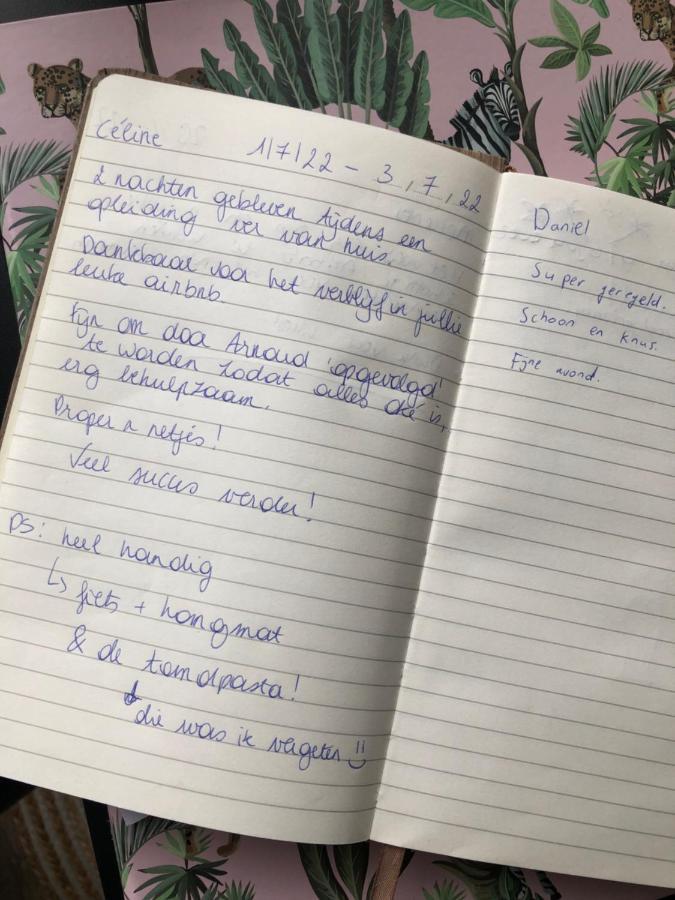 Céline 1/7/22 - 3,7,22
2 nachten gebleven tijdens een
opleiding ver van huis.
Dankbaar voor het verblijf in jullie
leuke airbnb
Fijn om doa Arnoud 'opgevolgd'
te worden zodat alles oké is,
erg behulpzaam.
Proper n netjes!
Veel succes verder!
PS: heel handig
↳ fiets + hangmat
& de tandpasta!
die was ik vergeten
Daniel
Super geregeld.
Schoon en knus.
Fijne avond.